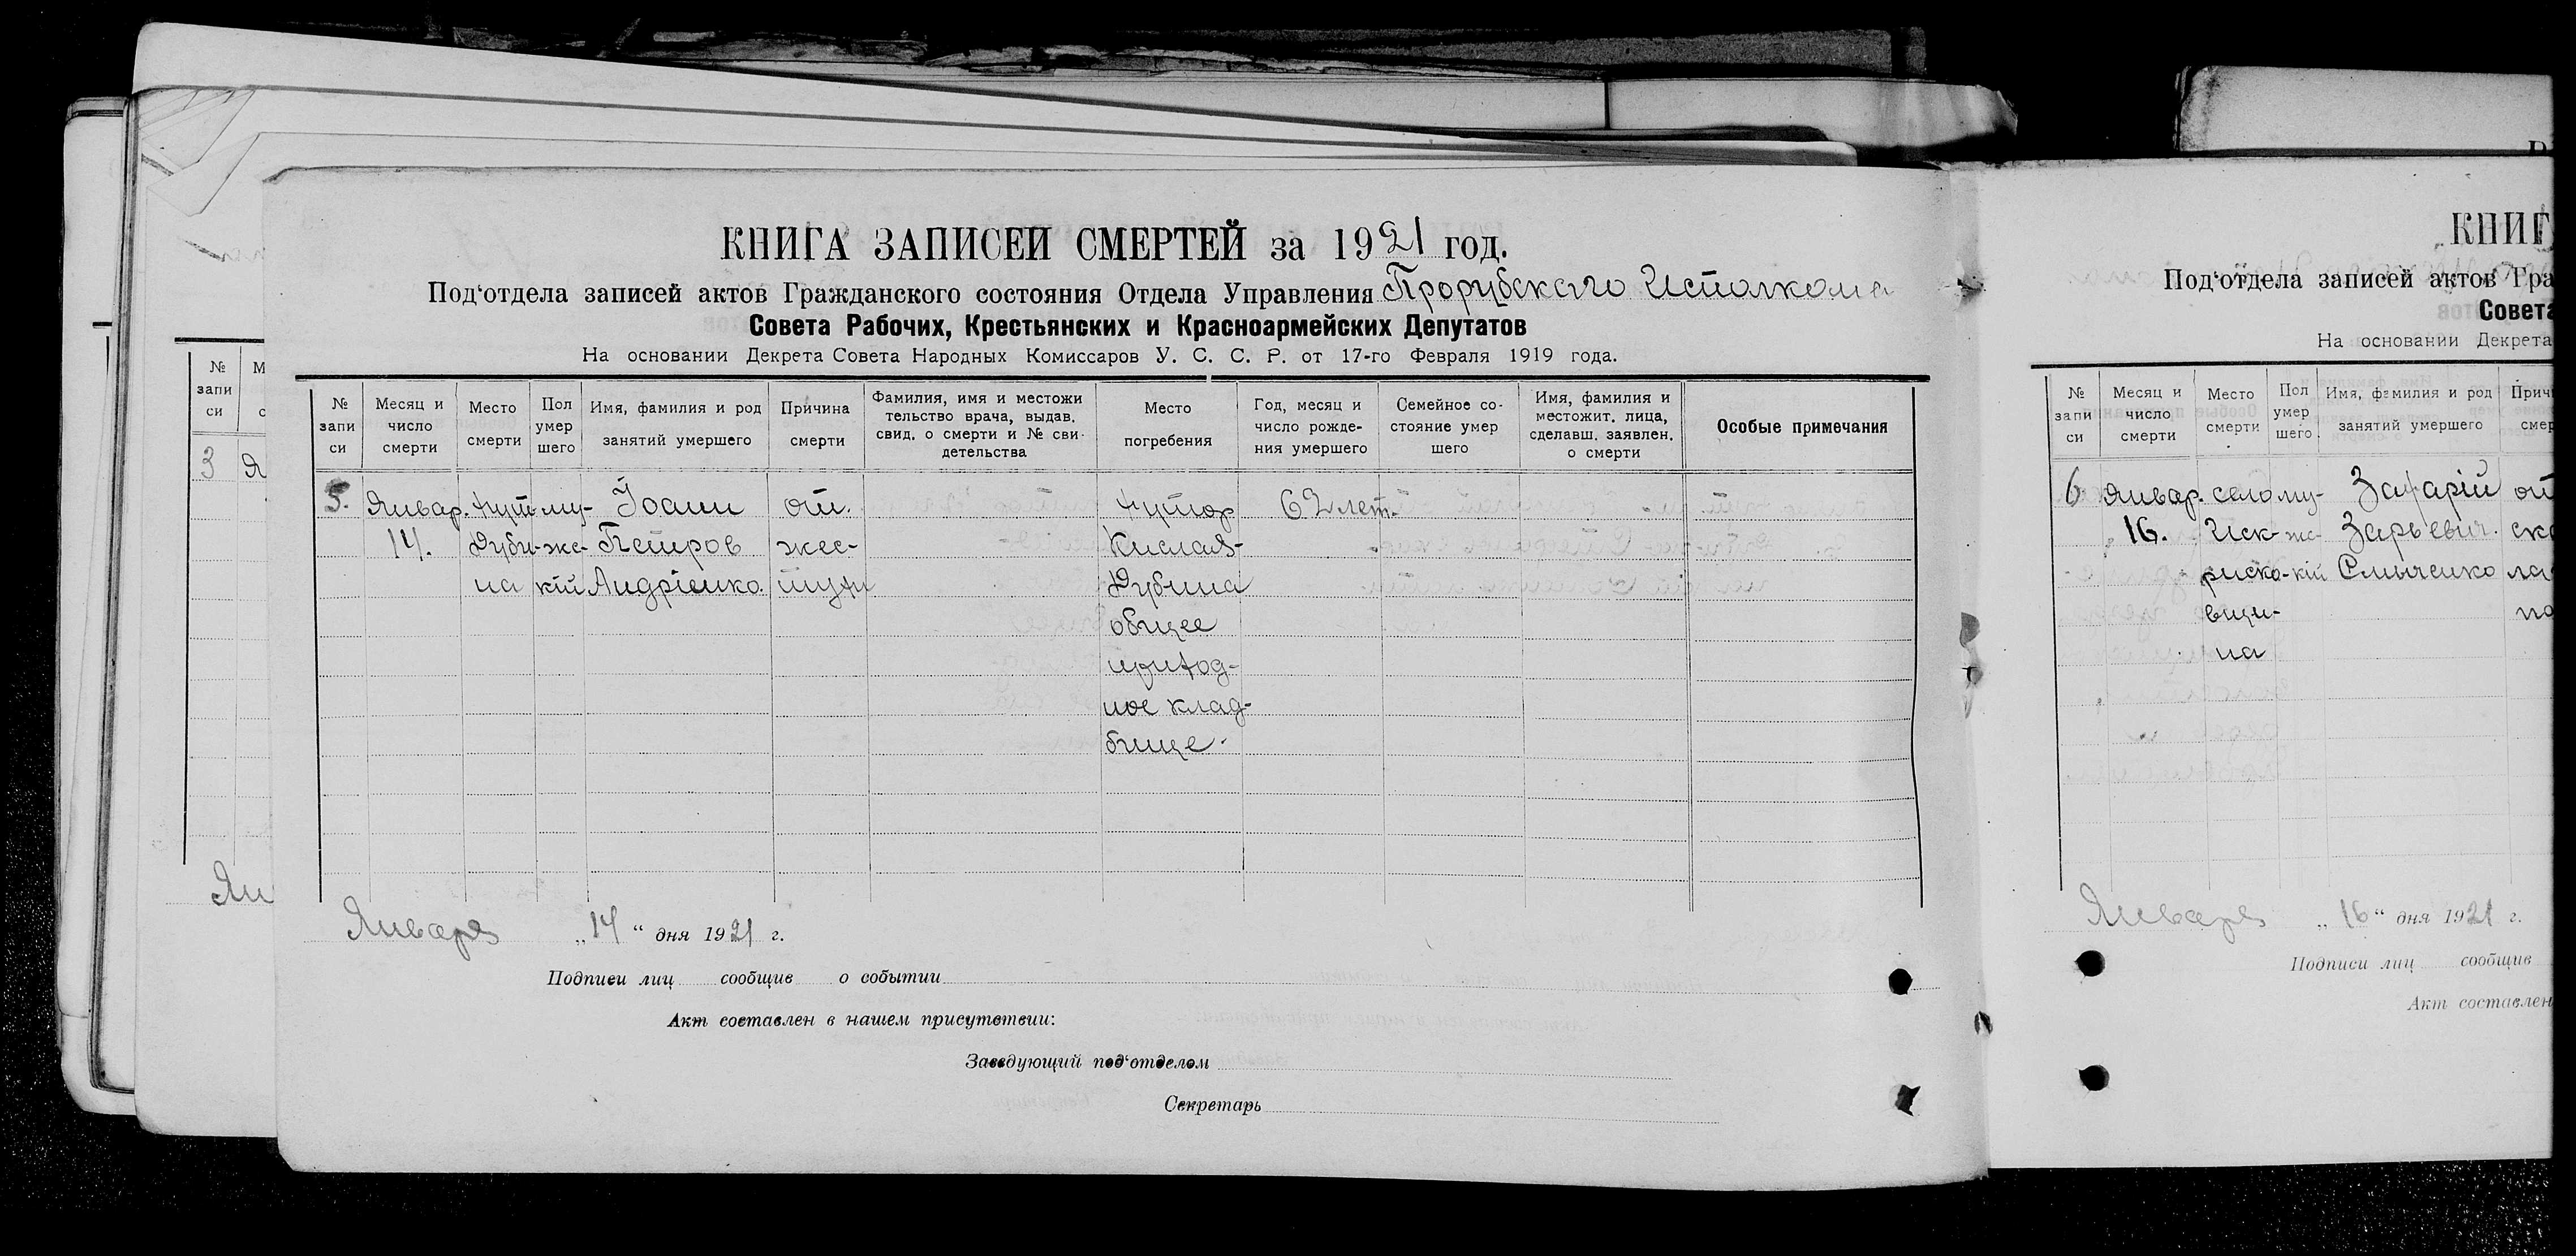 КНИГА ЗАПИСЕЙ СМЕРТЕЙ за 1921 год.
Под‘отдела записей актов Гражданского состояния Отдела Управления Прорубского Исполкома
Совета Рабочих, Крестьянских и Красноармейских Депутатов
На основании Декрета Совета Народных Комиссаров У. С. С. Р. от 17-го Февраля 1919 года.
№ запи си
Месяц и число смерти
Место смерти
Пол умер шего
Имя, фамилия и род занятий умершего
Причина смерти
Фамилия, имя и местожи тельство врача, выдав. свид. о смерти и № сви- детельства
Место погребения
Год, месяц и число рожде- ния умершего
Семейное со- стояние умер шего
Имя, фамилия и местожит. лица, сделавш. заявлен. о смерти
Особые примечания
5. Январ. хут. му- Іоанн от. хутор 62 лет.
14. Дуби- жс- Петров жес- Кислая-
на кій Андріенко. Дубина
общее
приход-
ное клад-
бище.
Января „14“ дня 1921 г.
Подписи лиц сообщив о событии
Акт составлен в нашем присутствии:
Заведующий под‘отделом
Секретарь
№ запи си
М
с
3 Я
Ян
КНИГ
Под‘отдела записей актов Гра
Совета
На основании Декрета
№ запи си
Месяц и число смерти
Место смерти
Пол умер шего
Имя, фамилия и род занятий умершего
Прич смер
6 Январ. село му- Захарій от
16. Иск- жс- Зарьевич. ско
риско- кій Смыченко ла
вщи- по
на
Января „16“ дня 1921 г.
Подписи лиц сообщив
Акт составлен